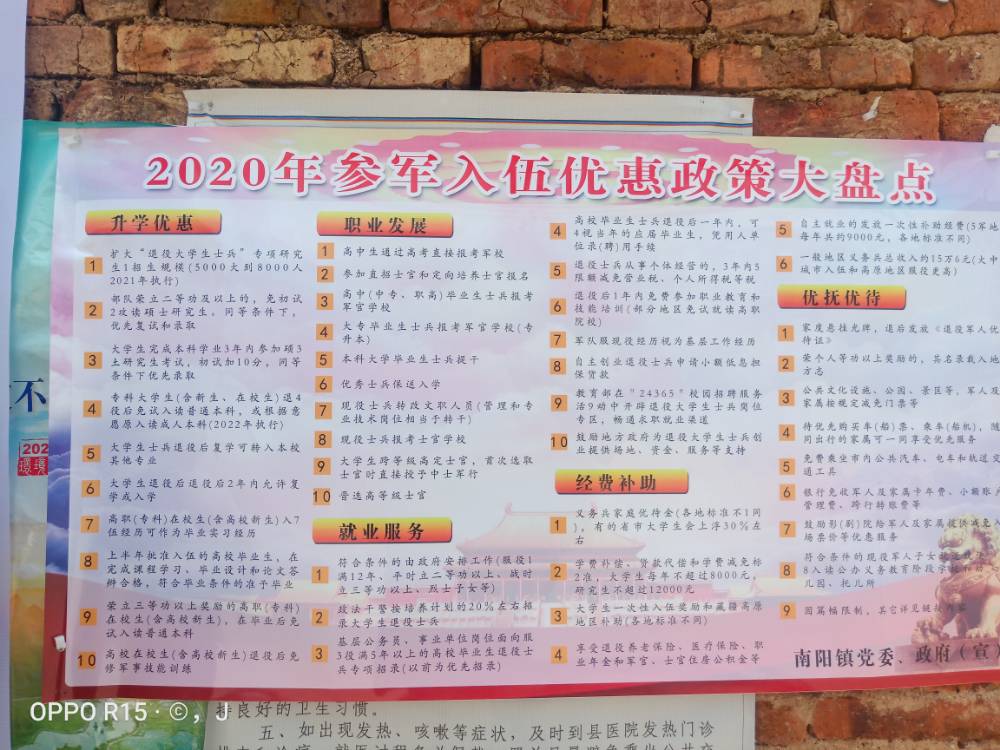 2020年参军入伍优惠政策大盘点
升学优惠
1 扩大“退役大学生士兵”专项研究
生1招生规模(5000大到8000人
2021年执行)
2 部队荣立二等功及以上的,免初试
2攻读硕士研究生,同等条件下,
优先复试和录取
3 大学生完成本科学业3年内参加硕3
士研究生考试,初试加10分,同等
条件下优先录取
4 专科大学生(含新生、在校生)退4
役后免试入读普通本科,或根据意
愿原入读成人本科(2022年执行)
5 大学生士兵退役后复学可转入本校
其他专业
6 大学生退役后退役后2年内允许复
学或入学
7 高职(专科)在校生(含高校新生)入7
伍经历可作为毕业实习经历
8 上半年批准入伍的高校毕业生,在
完成课程学习、毕业设计和论文答
辩合格,符合毕业条件的准予毕业
9 荣立三等功以上奖励的高职(专科)
在校生(含高校新生),在毕业后免
试入读普通本科
10 高校在校生(含高校新生)退役后免
修军事技能训练
职业发展
1 高中生通过高考直接报考军校
2 参加直招士官和定向培养士官报名
3 高中(中专、职高)毕业生士兵报考
军官学校
4 大专毕业生士兵报考军官学校(专
升本)
5 本科大学毕业生士兵提干
6 优秀士兵保送入学
7 现役士兵转改文职人员(管理和专
业技术岗位相当于转干)
8 现役士兵报考士官学校
9 大学生跨等级高定士官,首次选取
士官时直接授予中士军衔
10 晋选高等级士官
就业服务
1 符合条件的由政府安排工作(服役1
满12年、平时立二等功以上、战时
立三等功以上、烈士子女等)
2 政法干警按培养计划的20%左右招
录大学生退役士兵
3 基层公务员、事业单位岗位面向服
3役满5年以上的高校毕业生退役士
兵专项招录(以前为优先招录)
4 高校毕业生士兵退役后一年内,可
4视当年的应届毕业生,凭用人单
位录(聘)用手续
5 退役士兵从事个体经营的,3年内5
限额减免营业税、个人所得税等税
6 退役后1年内免费参加职业教育和
技能培训(部分地区免试就读高职
院校)
7 军队服现役经历视为基层工作经历
8 自主创业退役士兵申请小额低息担
保贷款
9 教育部在"24365"校园招聘服务
活9动中开辟退役大学生士兵岗位
专区,畅通求职就业渠道
10 鼓励地方政府为退役大学生士兵创
业提供场地、资金、服务等支持
经费补助
1 义务兵家庭优待金(各地标准不1同
),有的省市大学生会上浮30%左
右
2 学费补偿、贷款代偿和学费减免标
2准,大学生每年不超过8000元,
研究生不超过12000元
3 大学生一次性入伍奖励和藏疆高原
地区补助(各地标准不同)
4 享受退役养老保险、医疗保险、职
业年金和军官、士官住房公积金等
5 自主就业的发放一次性补助经费(5军地
每年共约9000元,各地标准不同)
6 一般地区义务兵总收入约15万6元(大中
城市入伍和高原地区服役更高)
优抚优待
1 家庭悬挂光牌,退后发放《退役军人优
待证》
2 荣个人等功以上奖励的,其名录载入地
方志
3 公共文化设施、公园、景区等,军人及
家属按规定减免门票等
4 待优先购买车(船)票、乘车(船机),随
同出行的家属可一同享受优先服务
5 免费乘坐市内公共汽车、电车和轨道交
通工具
6 银行免收军人及家属卡年费、小额账户
管理费、跨行转账费等
7 鼓励影(剧)院给军人及家属提供减免入
场票价等优惠服务
8 符合条件的现役军人子女
8入读公办义务教育阶段学校和幼
儿园、托儿所
9 因篇幅限制,其它详见链接内容
南阳镇党委、政府(宣)
不
202
OPPO R15 · ©, J
持良好的卫生习惯。
五、如出现发热、咳嗽等症状,及时到县医院发热门诊